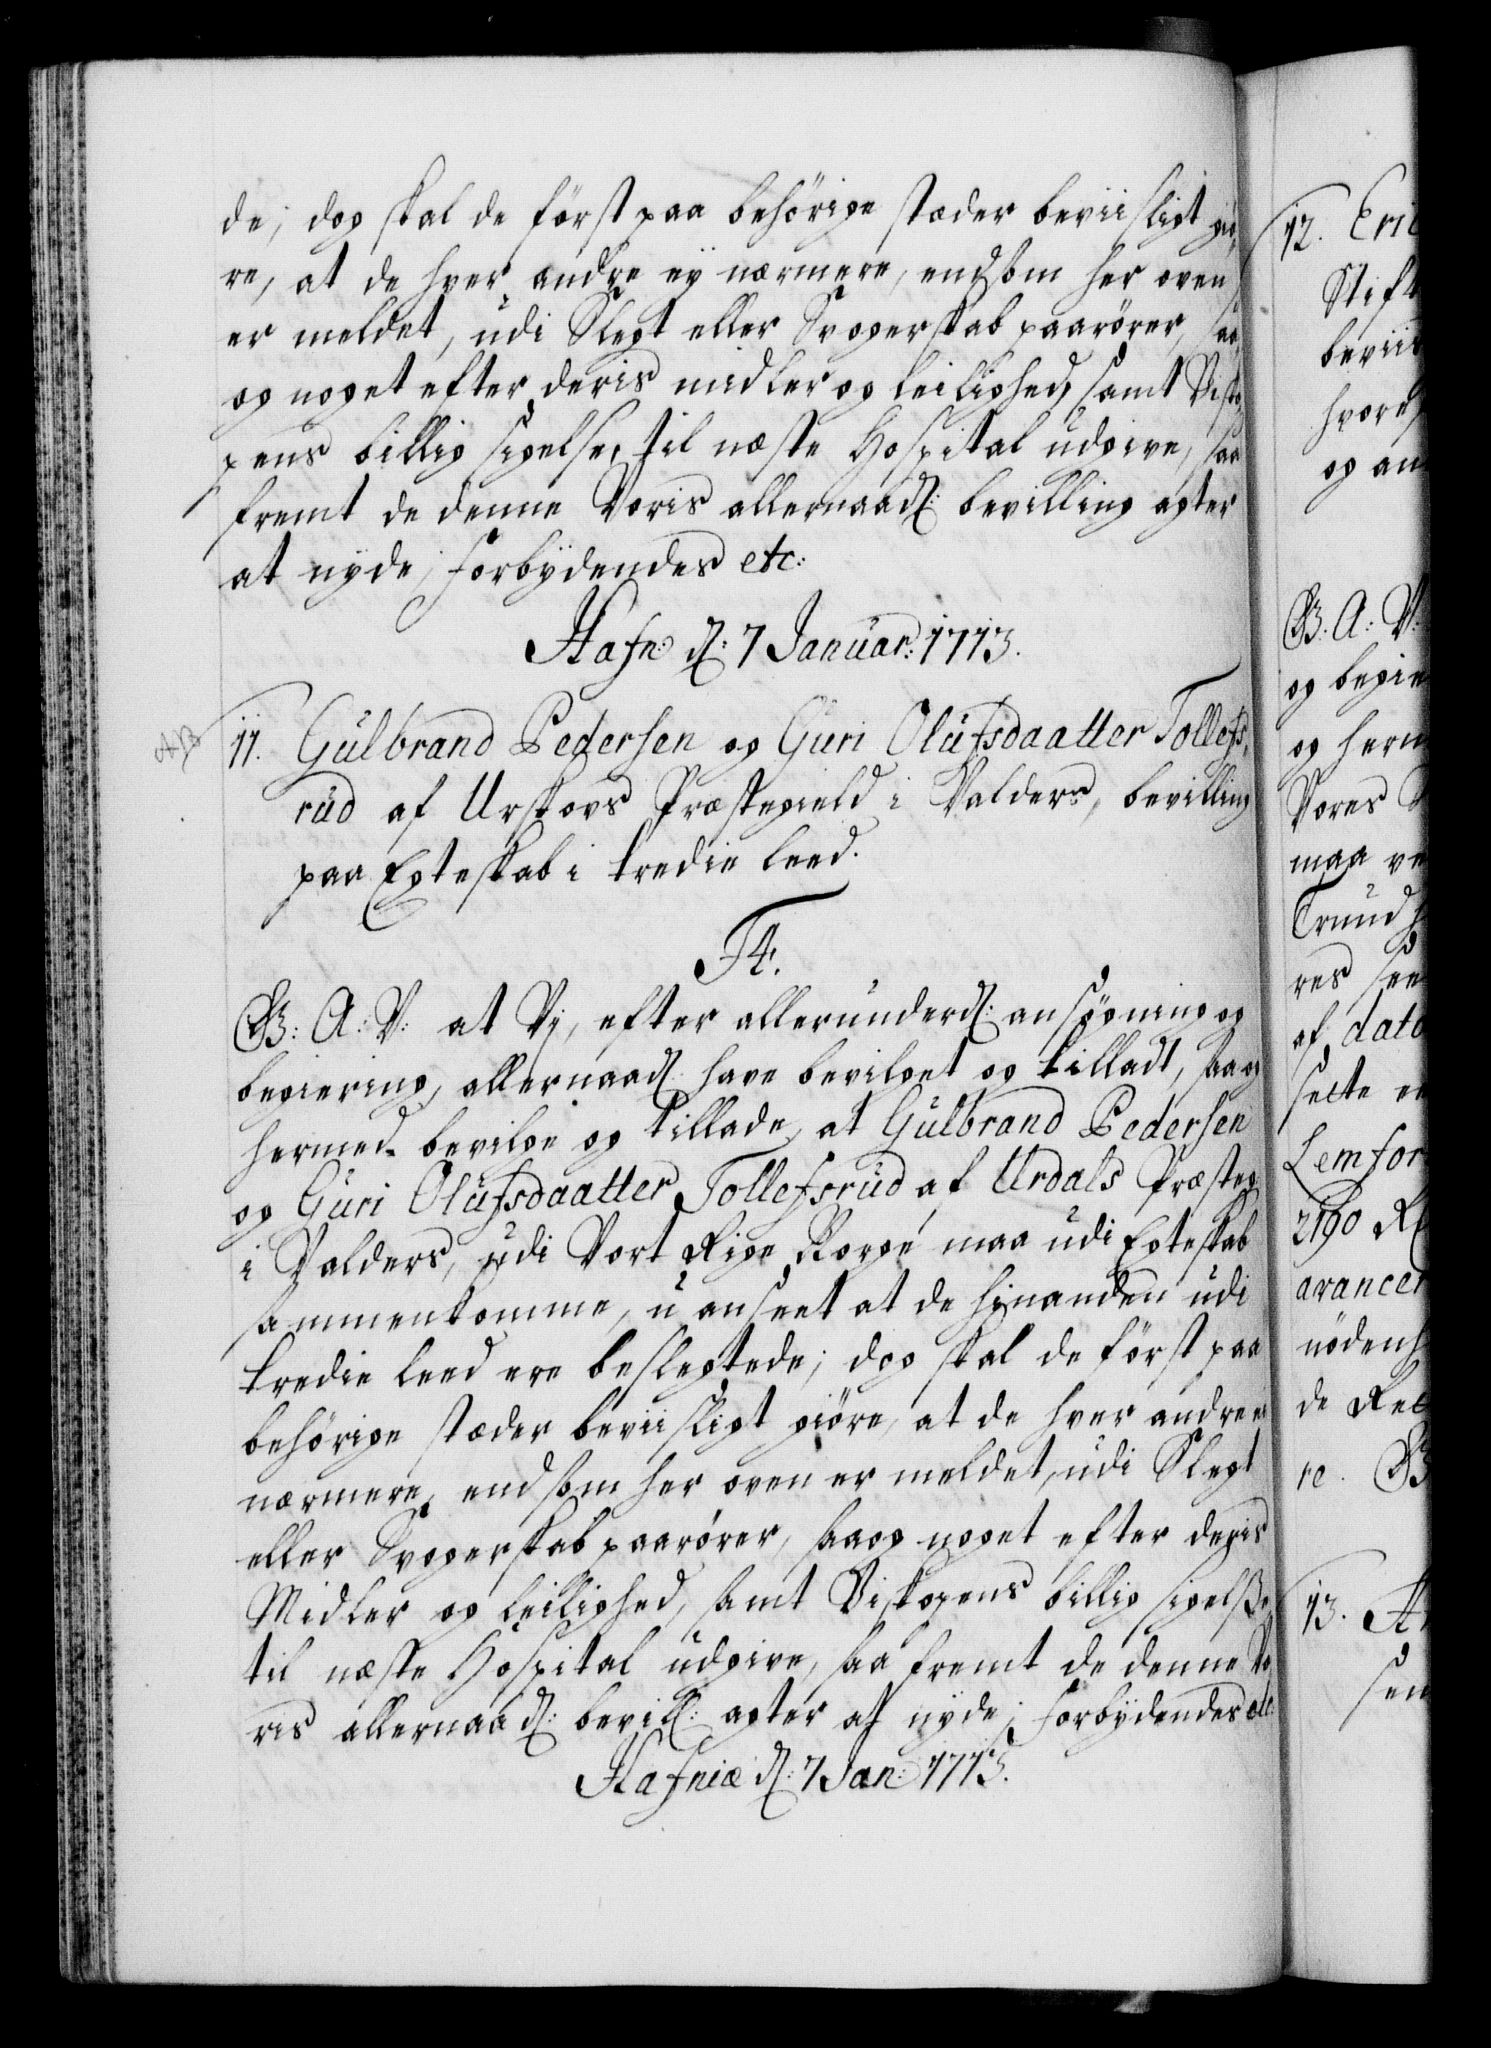 de; dog skal de først paa behörige stæder beviisligt giö,
re, at de hver andre ey nærmere, end som her oven
er meldet, udi Slegt eller Svogerskab paarører, saa
og noget efter deris midler og leilighed, samt Bisko,
pens billig sigelse, til næste Hospital udgive, saa
fremt de denne Voris allernaad: bevilling agter
at nyde; Forbydendes etc:
Hafn: d: 7 Januar: 1713.
11. Gulbrand Pedersen og Guri Olufsdaatter Tollefs,
rud af Urskovs Præstegield i Valders, bevilling
paa Egteskab i tredie leed.
F4.
G: A: V: at Vi, efter allerunderd: ansøgning og
begiering, allernaad: have bevilget og tilladt, saa og
hermed bevilge og tillade, at Gulbrand Pedersen
og Guri Olufsdaatter Tollefsrud af Urdals Præsteg:
i Valders, udi Vort Rige Norge maa udi Egteskab
sammenkomme, uanseet at de hinanden udi
tredie leed ere beslegtede; dog skal de först paa
behörige stæder beviisligt giöre, at de hver andre ei
nærmere, end som her oven er meldet, udi Slegt
eller Svogerskab paarører, saa og noget efter deris
Midler og leilighed, samt Biskopens billig sigelse,
til næste Hospital udgive, saa fremt de denne Vo
ris allernaad: bevill: agter at nyde; Forbydendes etc:
Hafniæ d: 7 Jan: 1713.
12. Eric
Stift
beviis
hvor
og an
G: A: V:
og begie
og herm
Vores
maa ve
Trund
res see
af dato
sette en
Lemfor
2190 R
avancer
nödenh
de Rec
re. G
13. A
sen